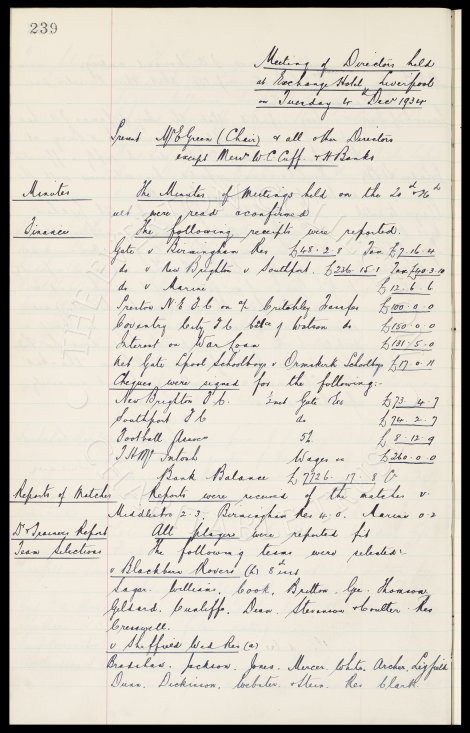 239
Meeting of Directors held
at Exchange Hotel, Liverpool
on Tuesday 4th Decr 1934
Present Mr E Green (Chair) & all other Directors
except Messrs W.C. Cuff & H Banks
Minutes
The Minutes of Meetings held on the 20th & 26th
ult were read & confirmed
Finance
The following receipts were reported.
Gate v Birmingham Res £48. 2. 8 Tax £7. 16. 4
do v New Brighton v Southport. £226. 15. 1 Tax £40. 3. 10
do v Marine £12. 6. 6
Preston N. E. F.C. on a/c Critchley Transfer £100. 0. 0
Coventry City F.C. of Watson do £150. 0. 0
Interest on War Loan £131. 5. 0
Net Gate Lpool Schoolboys v Ormskirk Schoolboys £17. 0. 11
Cheques were signed for the following:-
New Brighton F.C. Gate £73. 4. 7
Southport F.C. do £74. 2. 7
Football Assocn 5% £8. 12. 9
T. H. McIntosh Wages £260. 0. 0
Bank Balance £7726. 17. 8
Reports of Matches
Reports were received of the matches v
Middlesbro 2. 3. Birmingham Res 4. 0. Marine 0. 2
Dr & Trainers Report
All players were reported fit
Team Selections
The following teams were selected:-
v Blackburn Rovers (h) 8th inst
Sagar. Williams, Cook, Britton. Gee. Thomson,
Geldard, Cunliffe, Dean, Stevenson & Coulter. Res
Cresswell.
v Sheffield Wed Res (a)
Bradshaw. Jackson. Jones. Mercer. White, Archer, Leyfield
Dunn. Dickinson, Webster. & Stein. Res Clark.